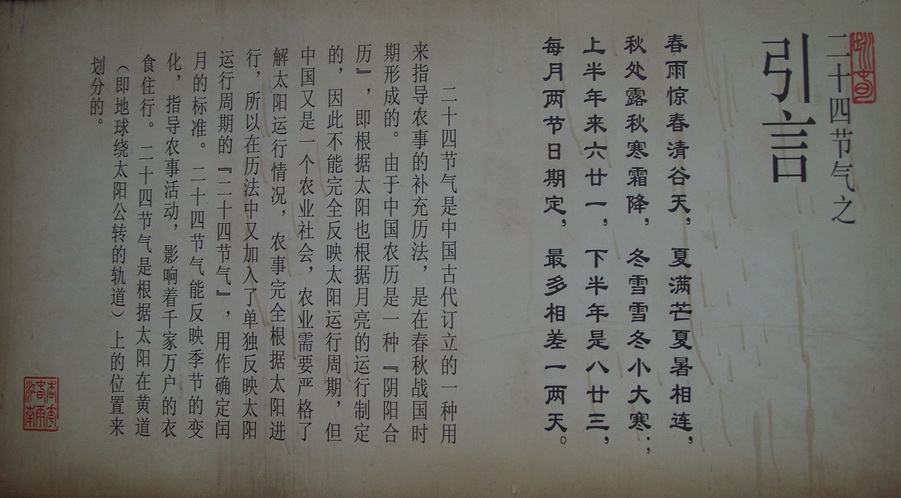 二十四节气之
引言
春雨惊春清谷天，夏满芒夏暑相连，
秋处露秋寒霜降，冬雪雪冬小大寒；
上半年来六廿一，下半年是八廿三，
每月两节日期定，最多相差一两天。
二十四节气是中国古代订立的一种用
来指导农事的补充历法，是在春秋战国时
期形成的。由于中国农历是一种『阴阳合
历』，即根据太阳也根据月亮的运行制定
的，因此不能完全反映太阳运行周期，但
中国又是一个农业社会，农业需要严格了
解太阳运行情况，农事完全根据太阳进
行，所以在历法中又加入了单独反映太阳
运行周期的『二十四节气』，用作确定闰
月的标准。二十四节气能反映季节的变
化，指导农事活动，影响着千家万户的衣
食住行。二十四节气是根据太阳在黄道
（即地球绕太阳公转的轨道）上的位置来
划分的。